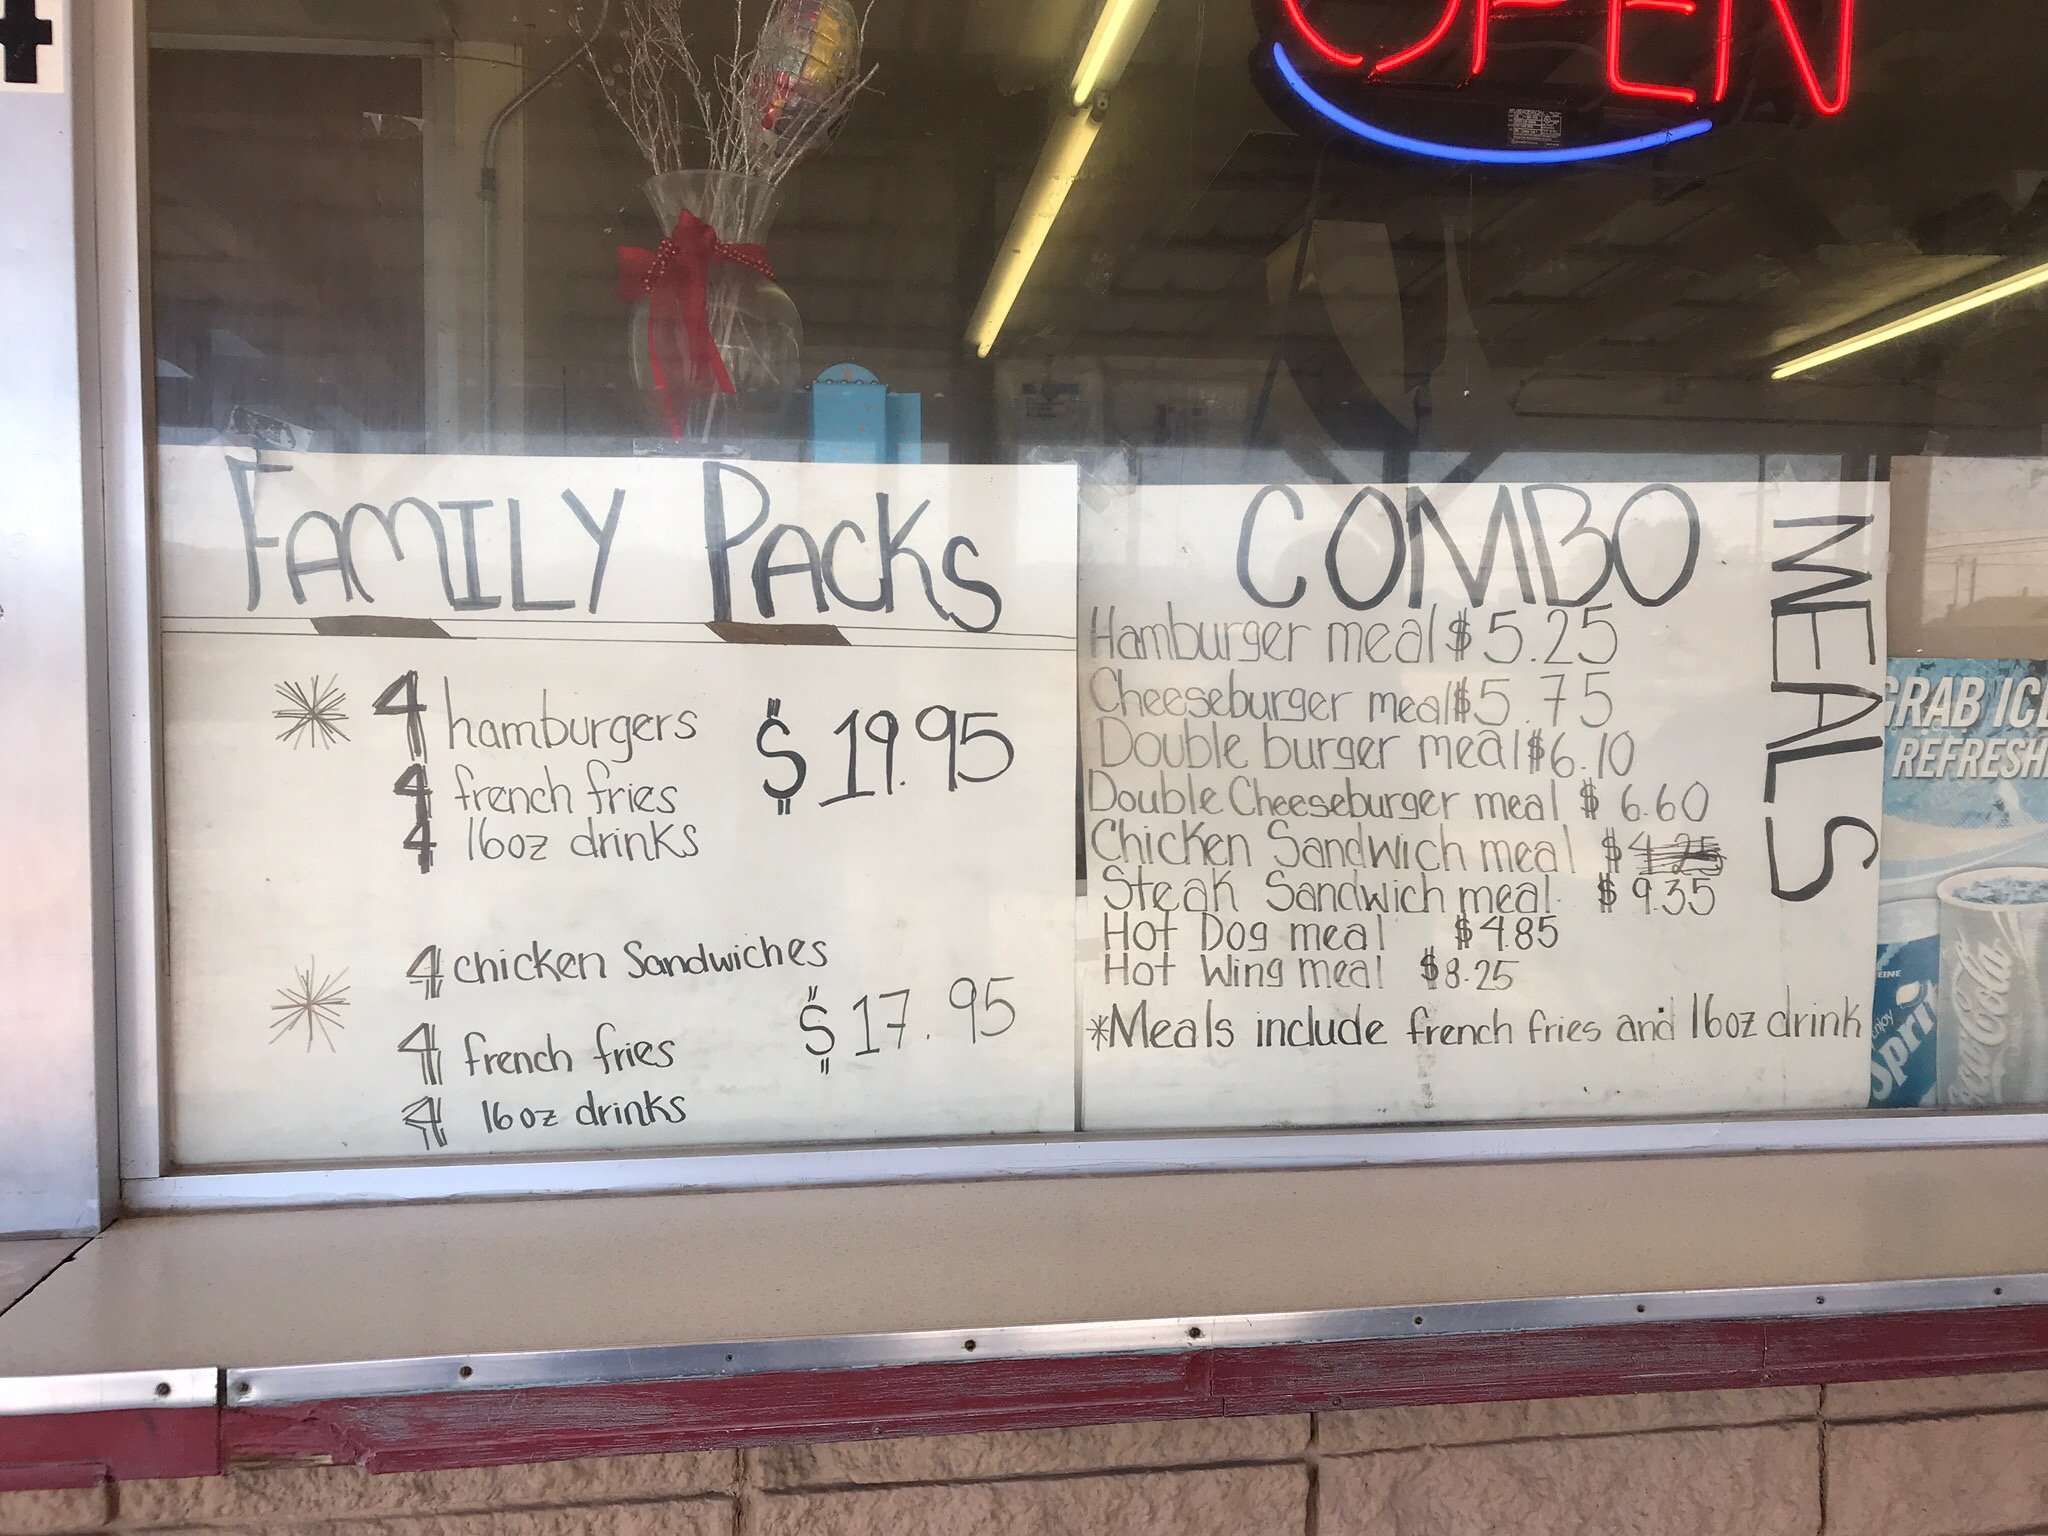 4
OPEN
FAMILY PACKS
4 hamburgers
$19.95
4 french fries
4 16oz drinks
4 chicken Sandwiches
$17.95
4 french fries
4 16oz drinks
COMBO
MEALS
Hamburger meal $5.25
Cheeseburger meal $5.75
Double burger meal $6.10
Double Cheeseburger meal $6.60
Chicken Sandwich meal $
Steak Sandwich meal. $9.35
Hot Dog meal $4.85
Hot Wing meal $8.25
*Meals include french fries and 16oz drink
GRAB ICE
REFRESH
Enjoy
Sprit
Coca-Cola